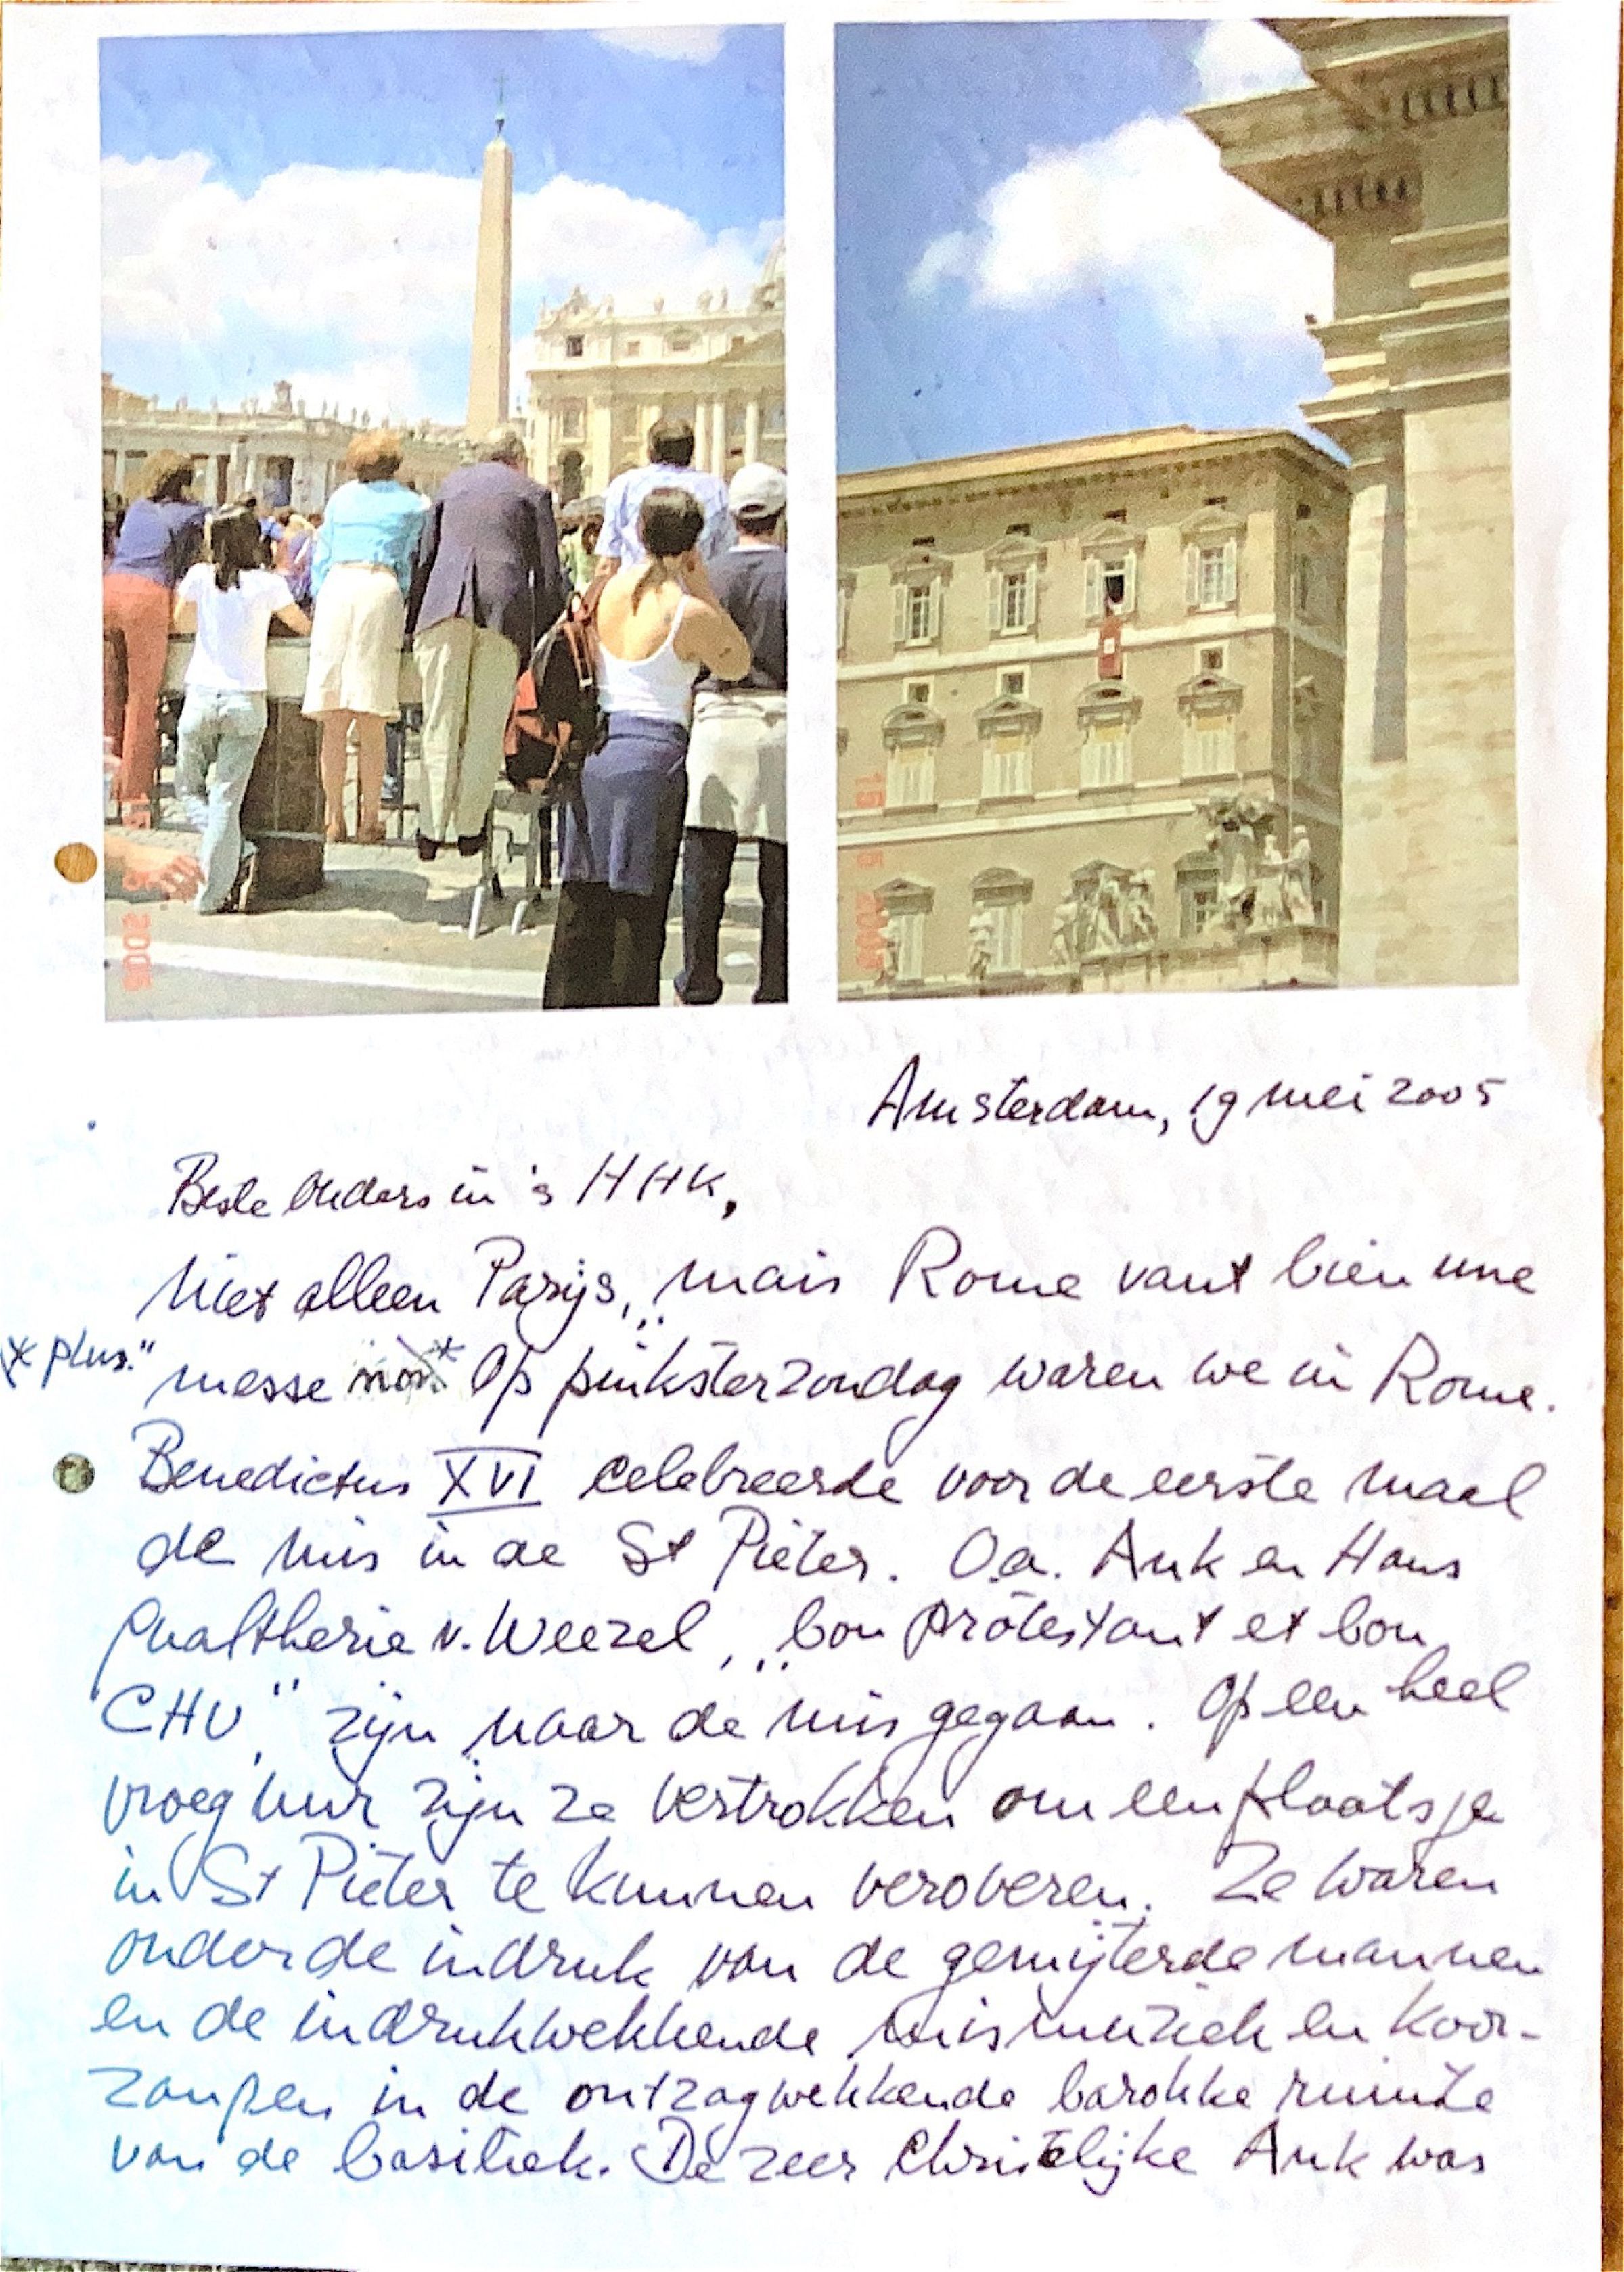 15 5 2005
15 5 2005
Amsterdam, 19 mei 2005
Beste Ouders in 's HHK,
Niet alleen Parijs, „mais Rome vaut bien une
* plus." messe non.* Op pinksterzondag waren we in Rome.
Benedictus XVI celebreerde voor de eerste maal
de mis in de St Pieter. O.a. Ank en Hans
Gualtherie v. Weezel, „bon protestant et bon
CHU" zijn naar de mis gegaan. Op een heel
vroeg uur zijn ze vertrokken om een plaatsje
in St Pieter te kunnen veroveren. Ze waren
onder de indruk van de gemijterde mannen
en de indrukwekkende mismuziek en koor-
zangen in de ontzagwekkende barokke ruimte
van de basiliek. De zeer Christelijke Ank was